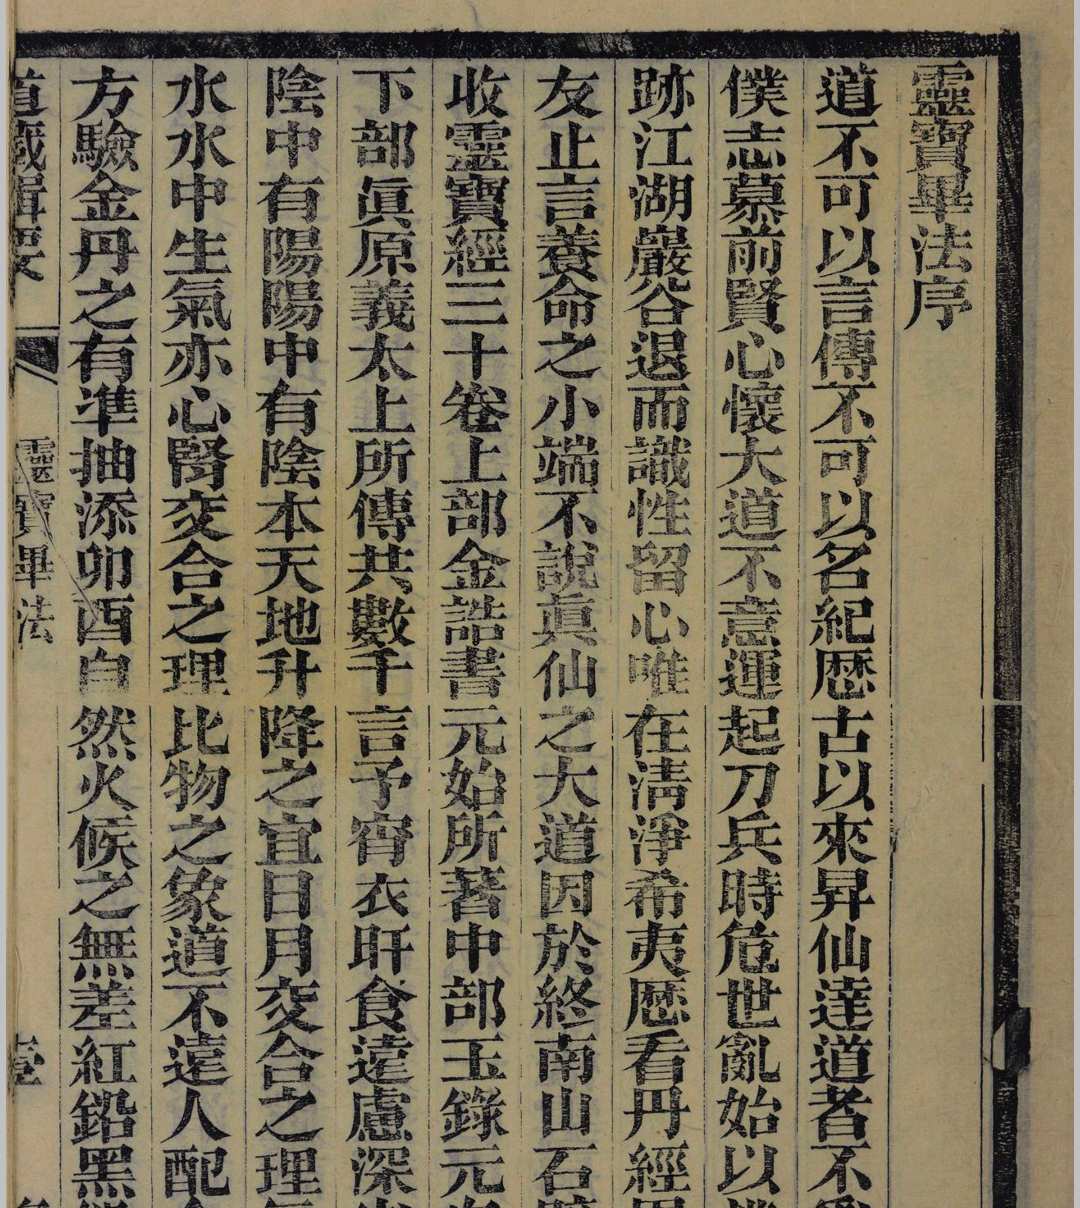 靈寶畢法序
道不可以言傳不可以名紀歷古以來昇仙達道者不
僕志慕前賢心懷大道不意運起刀兵時危世亂始以
跡江湖巖谷退而識性留心唯在淸淨希夷歷看丹經
友止言養命之小端不說眞仙之大道因於終南山石
收靈寶經三十卷上部金誥書元始所著中部玉錄元
下部眞原義太上所傳共數千言予宵衣旰食遠慮深
陰中有陽陽中有陰本天地升降之宜日月交合之理
水水中生氣亦心腎交合之理比物之象道不遠人配
方驗金丹之有准抽添卯酉自然火候之無差紅鉛黑
道藏輯要
靈寶畢法